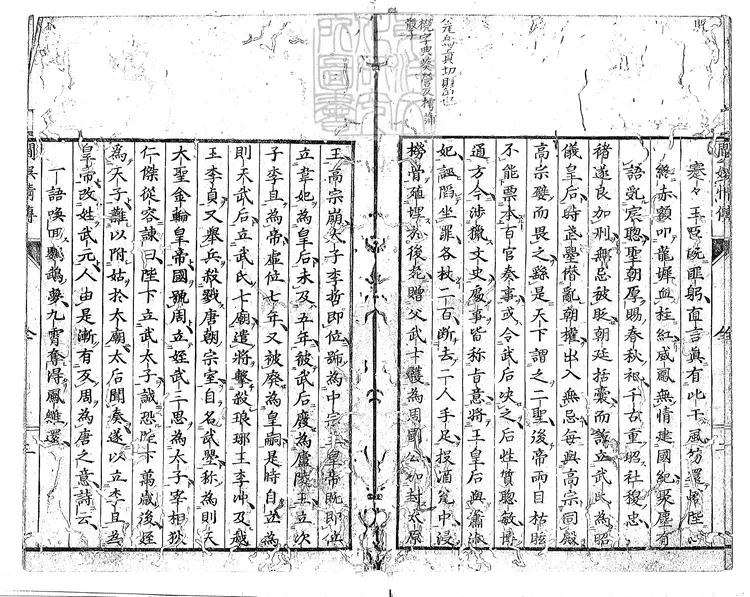 蹇々王臣既匪躬面言真有比干風
終赤額叩龍墀血柱紅威鳳無情建國紀聚麀有
語乱宸聰聖朝厚賜春秋祀千古重昭社稷忠
禇遂良加刑無忌被貶朝廷括囊而議立武氏為昭
儀皇后時武墨僭亂朝權出入無忌每與高宗同殿
高宗嬖而畏之繇是天下謂之二聖後帝兩目枯眩
不能票本百官奏事或令武后决之后性質聰敏博
通方今涉獵文史處事皆称旨意將王皇后與蕭淑
妃誣陷坐罪各杖一百断去二人手足投酒瓮中浸
撈骨殖埋于後苑贈父武士彠為周國公加封太原
王高宗崩太子李哲即位號為中宗王皇帝既即位
立韋妃為皇后未及五年被武后廢為廬陵王立次
子李旦為帝虛位七年又被廢為皇嗣是時自立為
則天武后立武氏七廟遣將擊殺琅琊王李冲及越
王李貞又舉兵殺戮唐朝宗室自名武曌称為則天
大聖金輪皇帝國號周立姪武三思為太子宰相狄
仁傑從容諫曰陛下立武太子誠恐陛下萬歲後姪
為天子難以附姑於太廟太后聞奏遂以立李旦為
皇帝改姓武元人由是漸有反周為唐之意詩云
一語喚回鸚鵡夢九霄奪得鳳雛還